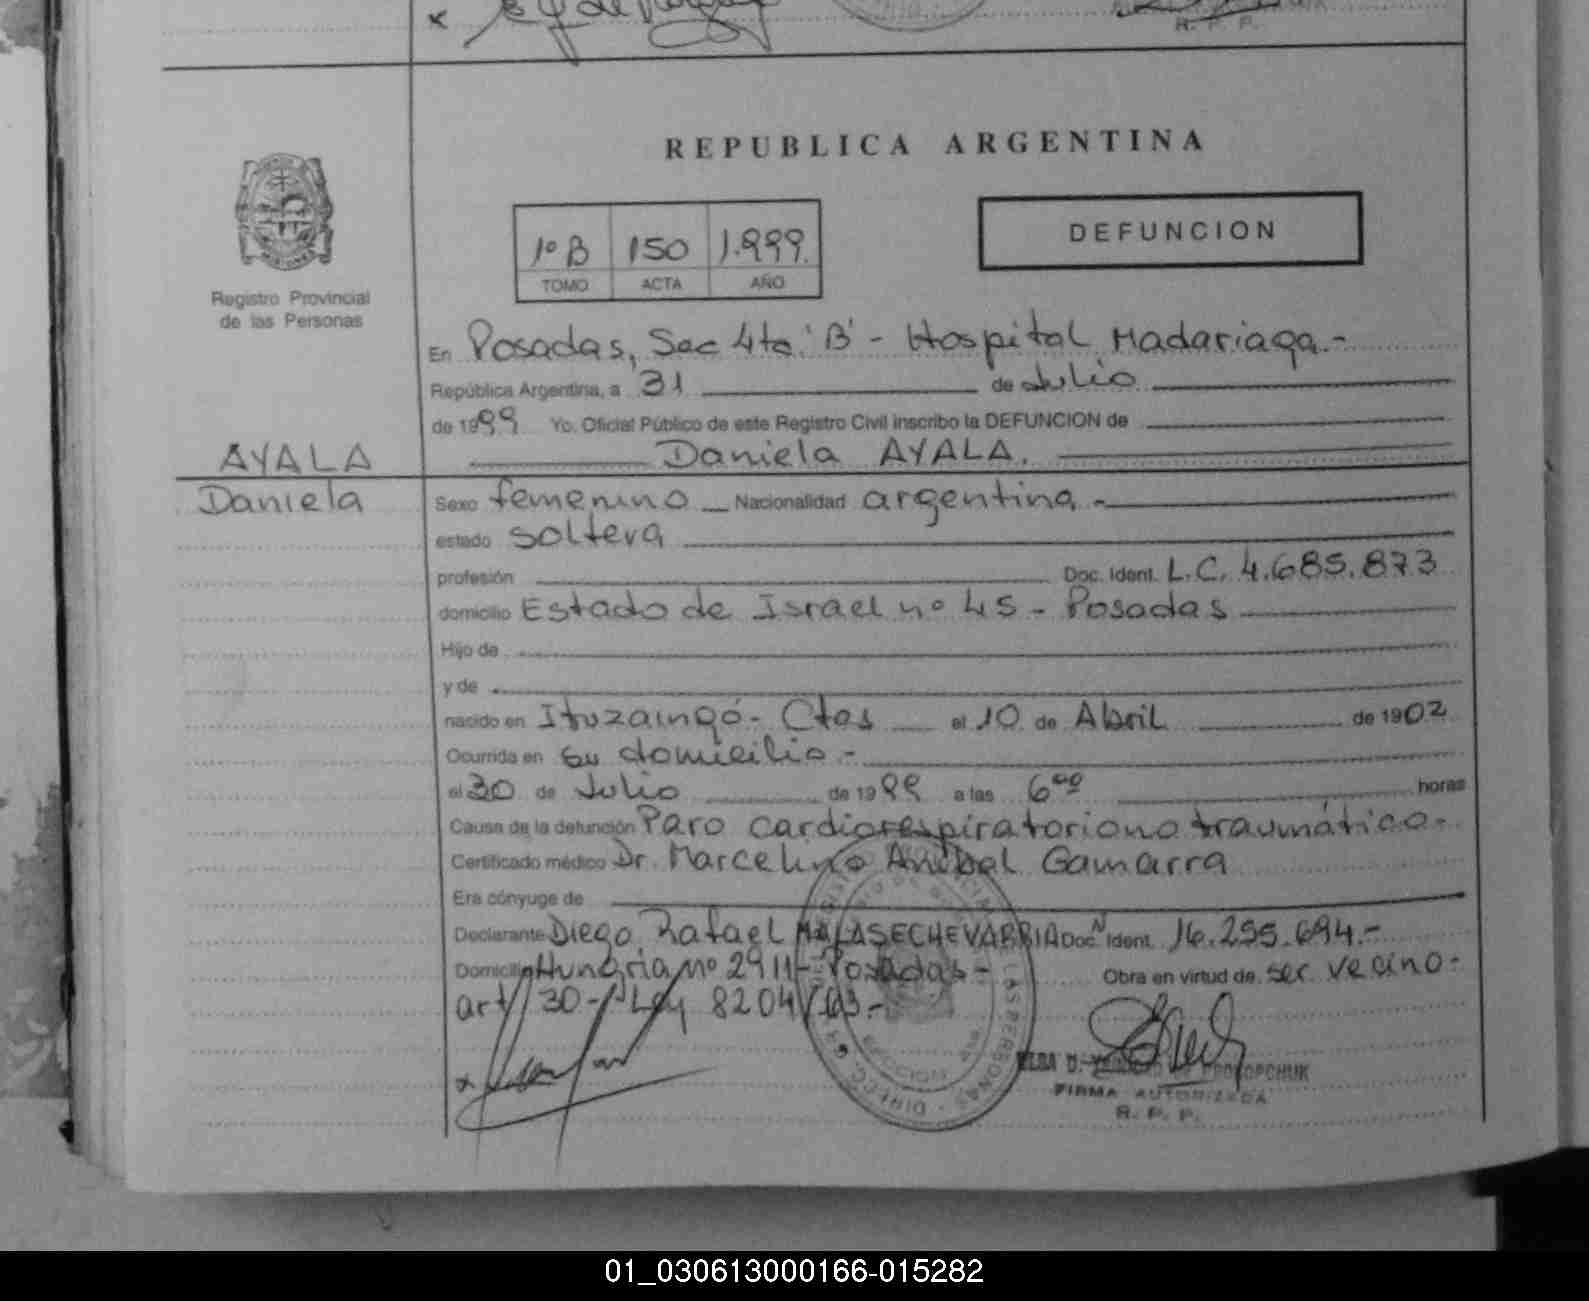 R. P. P.
REPUBLICA ARGENTINA
1º B 150 1.999.
TOMO ACTA AÑO
DEFUNCION
Registro Provincial
de las Personas
En Posadas, Sec 4ta 'B' - Hospital Madariaga.-
República Argentina, a 31 de Julio
de 1999 Yo. Oficial Público de este Registro Civil inscribo la DEFUNCION de
Daniela AYALA.
AYALA
Daniela
Sexo femenino Nacionalidad argentina.-
estado soltera
profesión Doc. Ident. L.C. 4.685.873
domicilio Estado de Israel nº 45 - Posadas
Hijo de
y de
nacido en Ituzaingó - Ctes el 10 de Abril de 1902
Ocurrida en su domicilio.-
el 30 de Julio de 1999 a las 6⁰⁰ horas
Causa de la defunción Paro cardiorespiratorio no traumático.-
Certificado médico Dr. Marcelino Anibal Gamarra
Era cónyuge de
Declarante Diego Rafael MALASECHEVARRIA Doc. N Ident. 16.295.694.-
Domicilio Hungria nº 2911 - Posadas - Obra en virtud de ser vecino -
art 30 - Ley 8204/63.-
PROKOPCHUK
FIRMA AUTORIZADA
R. P. P.
01_030613000166-015282